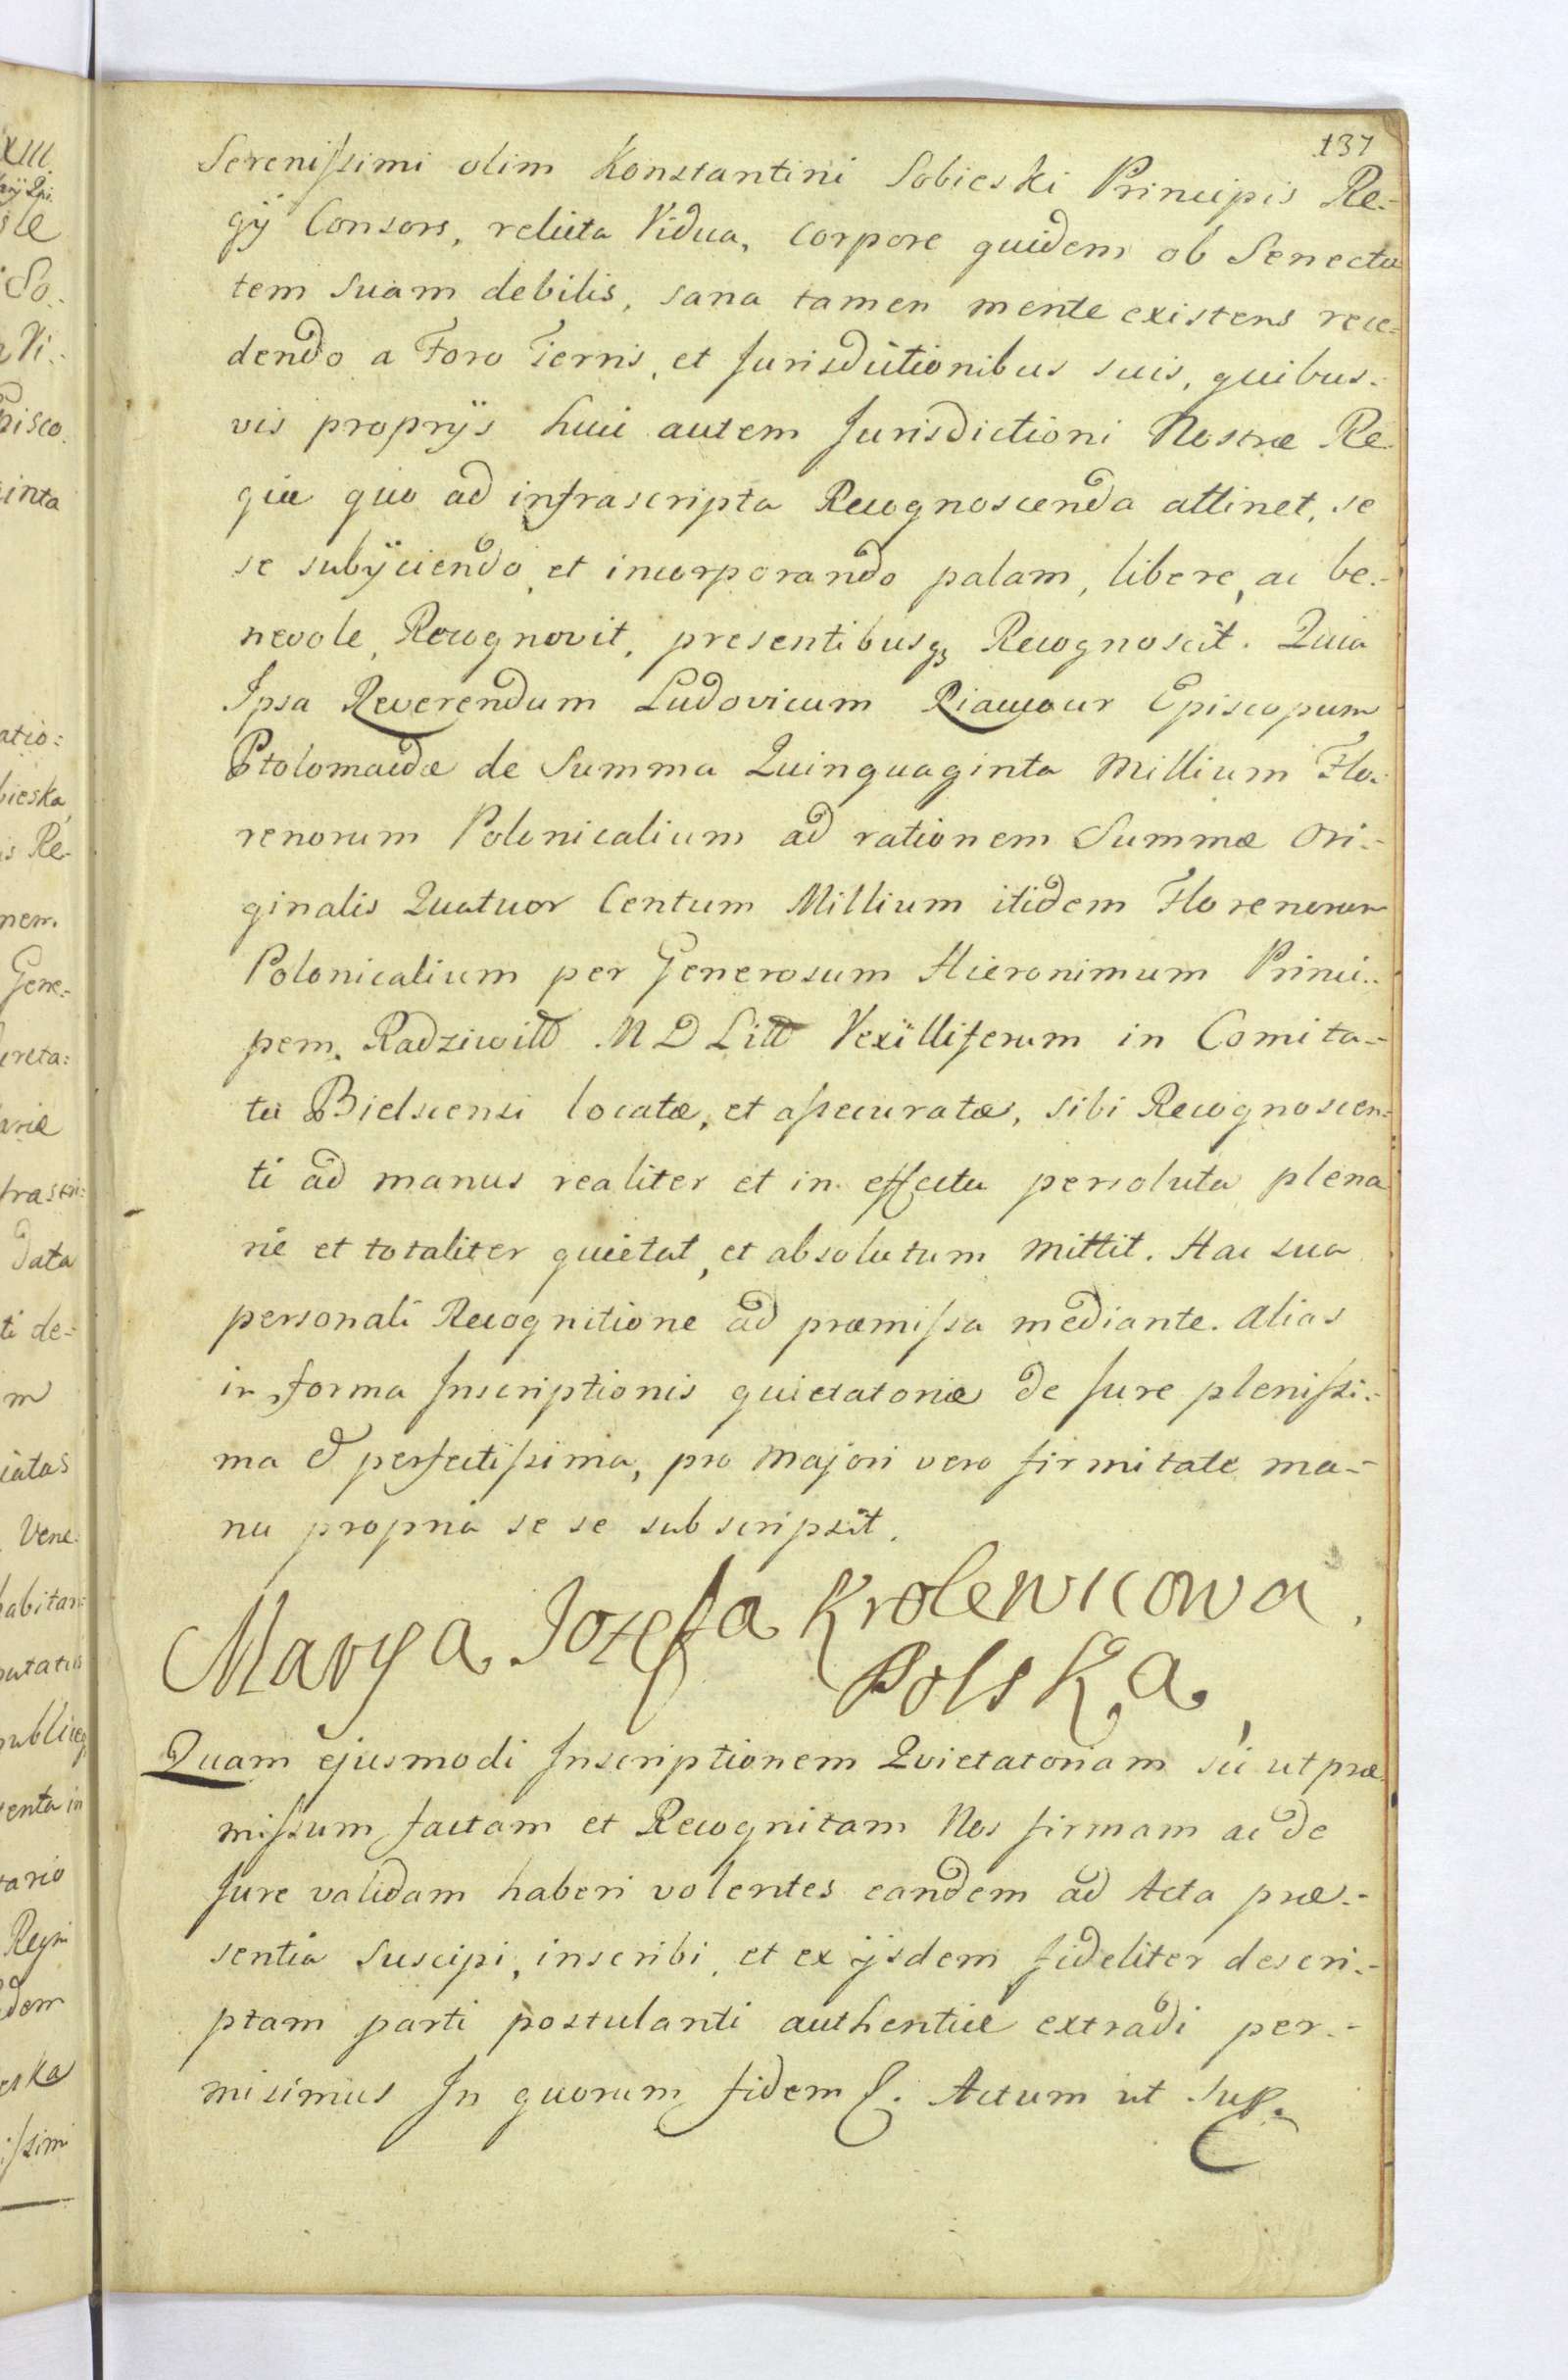 137
Serenissimi olim Konstantini Sobieski Principis Re-
gÿ Consors, relicta Vidua, corpore quidem ob Senectu
tem suam debilis, sana tamen mente existens rece-
dendo a Foro Terris, et Jurisdictionibus suis, quibus-
vis proprÿs huic autem Jurisdictioni Nostræ Re
giæ quo ad infrascripta Recognoscenda attinet, se
se subÿciendo, et incorporando palam, libere, ac be-
nevole, Recognovit, presentibusq3 Recognoscit. Quia
Ipsa Reverendum Ludovicum Riaucour Episcopum
Ptolomaidæ de Summa Quinquaginta Millium Flo-
renorum Polonicalium ad rationem Summæ Ori-
ginalis Quatuor Centum Millium itidem Florenorum
Polonicalium per Generosum Hieronimum Princi-
pem Radziwiłł M D Litt Vexilliferum in Comita-
tu Bielscensi locatæ, et assecuratæ, sibi Recognoscen-
ti ad manus realiter et in effectu persoluta plena
rie et totaliter quietat, et absolutum mittit. Hac sua
personali Recognitione ad præmissa mediante. alias
in forma Inscriptionis quietatoriæ de Jure plenissi-
ma & perfectissima, pro majori vero firmitate ma-
nu propria se se subscripsit.
Marya Jozefa Krolewicowa
Polska,
Quam ejusmodi Inscriptionem Qvietatoriam sic ut præ
missum factam et Recognitam Nos firmam ac de
Jure validam haberi volentes eandem ad Acta præ-
sentia Suscipi, inscribi, et ex ÿsdem fideliter descri-
ptam parti postulanti authentice extradi per-
misimus In quorum fidem &. Actum ut Sup.